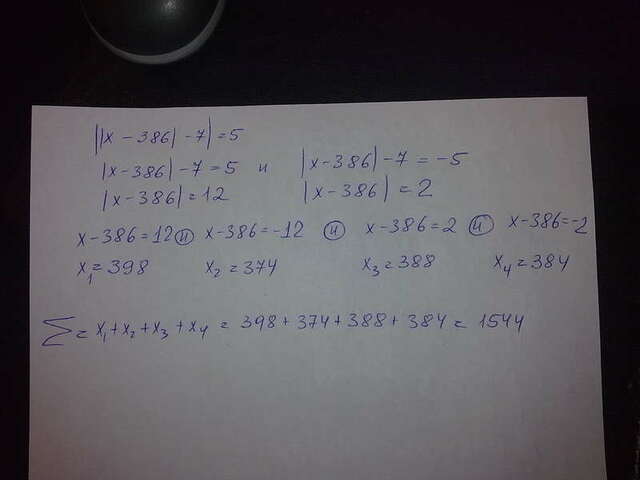 ||x - 386| - 7| = 5
|x - 386| - 7 = 5 и |x - 386| - 7 = -5
|x - 386| = 12 |x - 386| = 2
x - 386 = 12 и x - 386 = -12 и x - 386 = 2 и x - 386 = -2
x₁ = 398 x₂ = 374 x₃ = 388 x₄ = 384
∑ = x₁ + x₂ + x₃ + x₄ = 398 + 374 + 388 + 384 = 1544